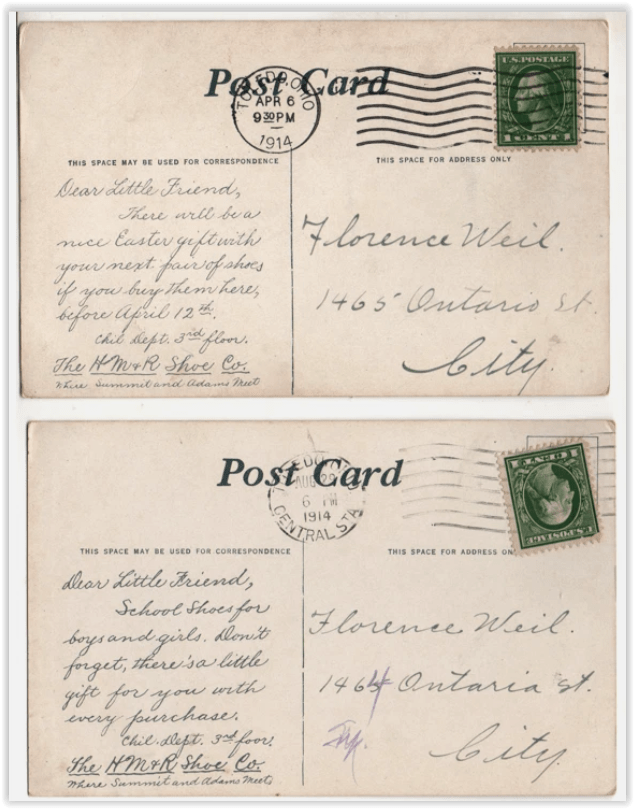 Post Card
TOLEDO, OHIO
APR 6
9 30 PM
1914
U.S. POSTAGE
1 CENT 1
THIS SPACE MAY BE USED FOR CORRESPONDENCE
THIS SPACE FOR ADDRESS ONLY
Dear Little Friend,
There will be a
nice Easter gift with
your next pair of shoes
if you buy them here,
before April 12th.
Chil Dept. 3rd floor.
The H M & R Shoe Co.
Where Summit and Adams Meet
Florence Weil.
1465 Ontario St.
City.
Post Card
TOLEDO, OHIO
AUG 29
6 PM
1914
CENTRAL STA.
U.S. POSTAGE
1 CENT 1
THIS SPACE MAY BE USED FOR CORRESPONDENCE
THIS SPACE FOR ADDRESS ON
Dear Little Friend,
School Shoes for
boys and girls. Don't
forget, there's a little
gift for you with
every purchase.
Chil. Dept. 3rd foor.
The H M & R Shoe Co.
Where Summit and Adams Meets
Florence Weil.
1464 Ontaria St.
City.